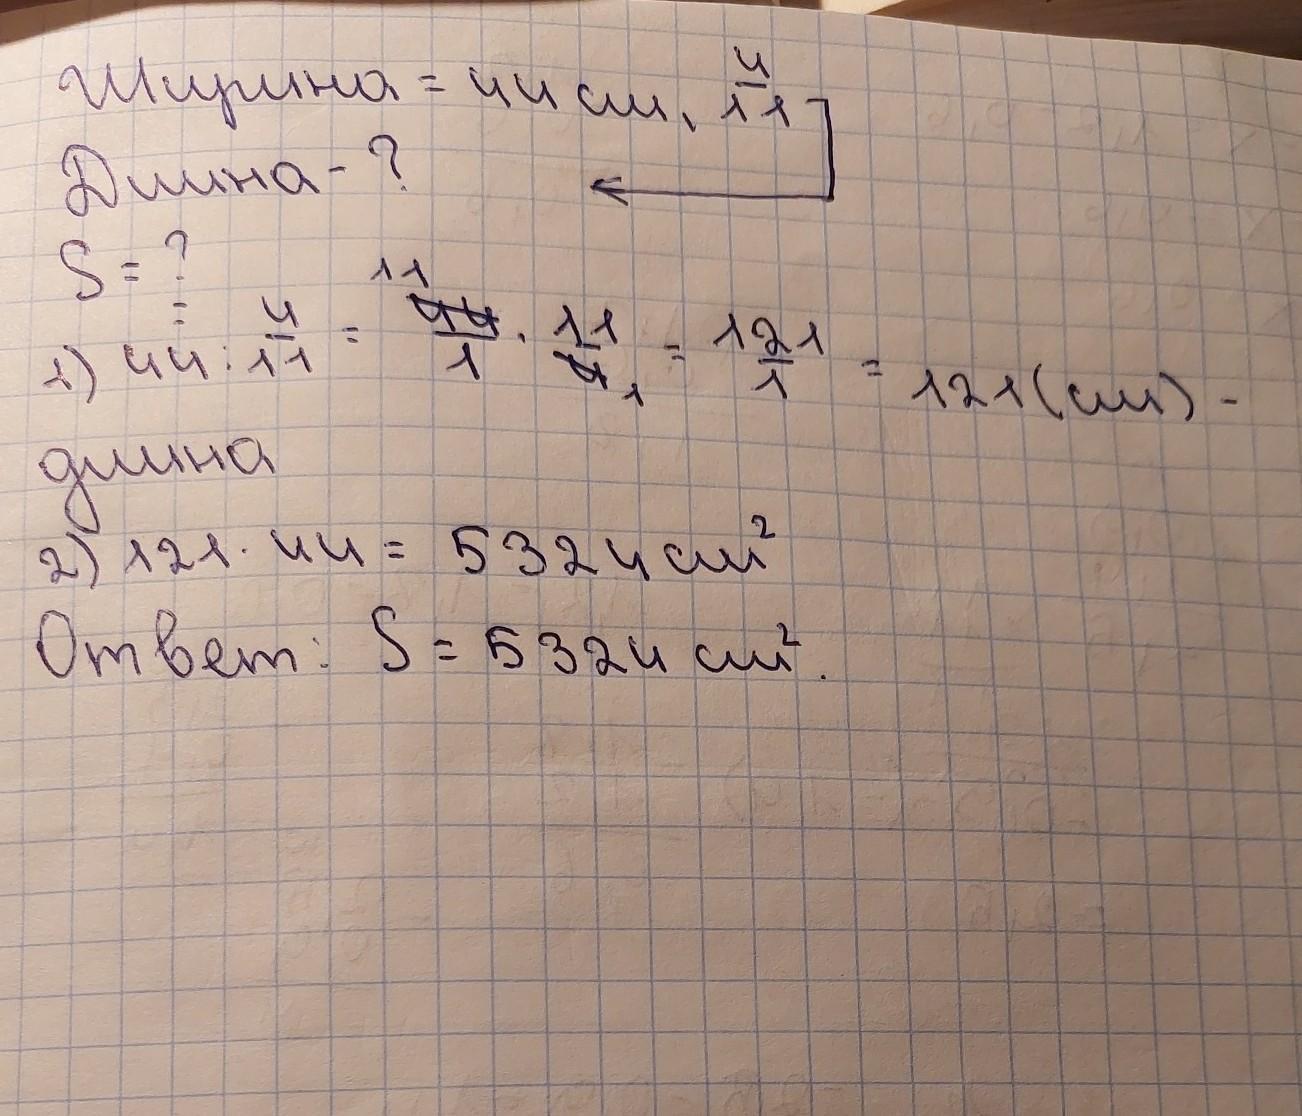 Ширина = 44 см, 4/11
Длина - ?
S = ?
1) 44 : 4/11 = 44/1 · 11/4 = 121/1 = 121 (см) -
11 1
длина
2) 121 · 44 = 5324 см²
Ответ: S = 5324 см².